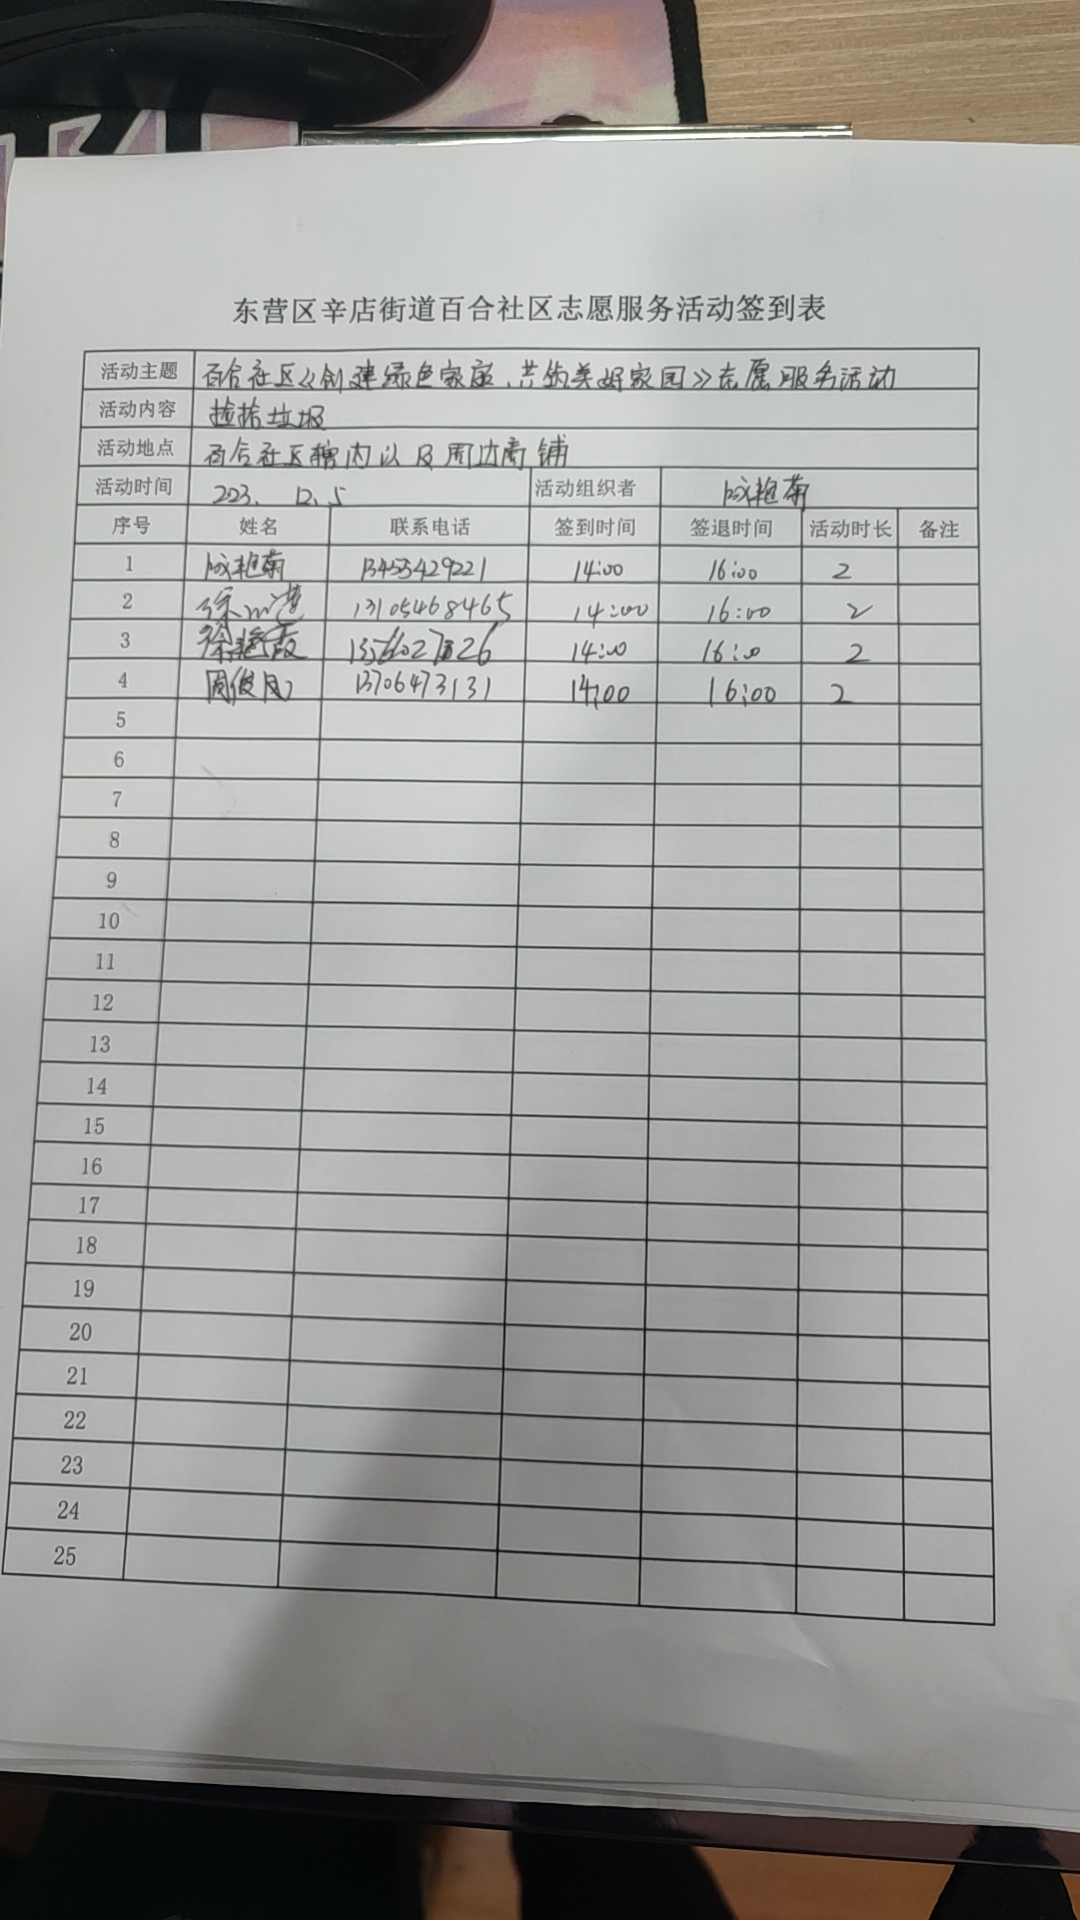 东营区辛店街道百合社区志愿服务活动签到表
活动主题 百合社区《创建绿色家庭、共筑美好家园》志愿服务活动
活动内容 捡拾垃圾
活动地点 百合社区辖内以及周边商铺
活动时间 2023. 12.5 活动组织者 成艳菊
序号 姓名 联系电话 签到时间 签退时间 活动时长 备注
1 成艳菊 13453429221 14:00 16:00 2
2 徐 13105468465 14:00 16:00 2
3 徐艳霞 14:00 16:00 2
4 周俊凤 13706473131 14:00 16:00 2
5
6
7
8
9
10
11
12
13
14
15
16
17
18
19
20
21
22
23
24
25